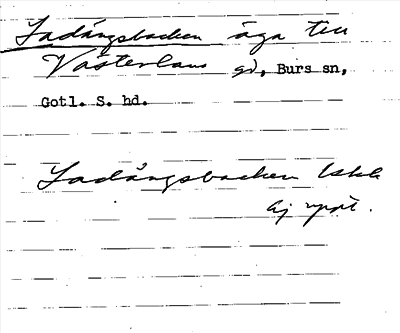 Ladängsbacken äga till
Västerlaus gd, Burs sn,
Gotl. S. hd.
Ladängsbacken Iskl
Ej uppt.